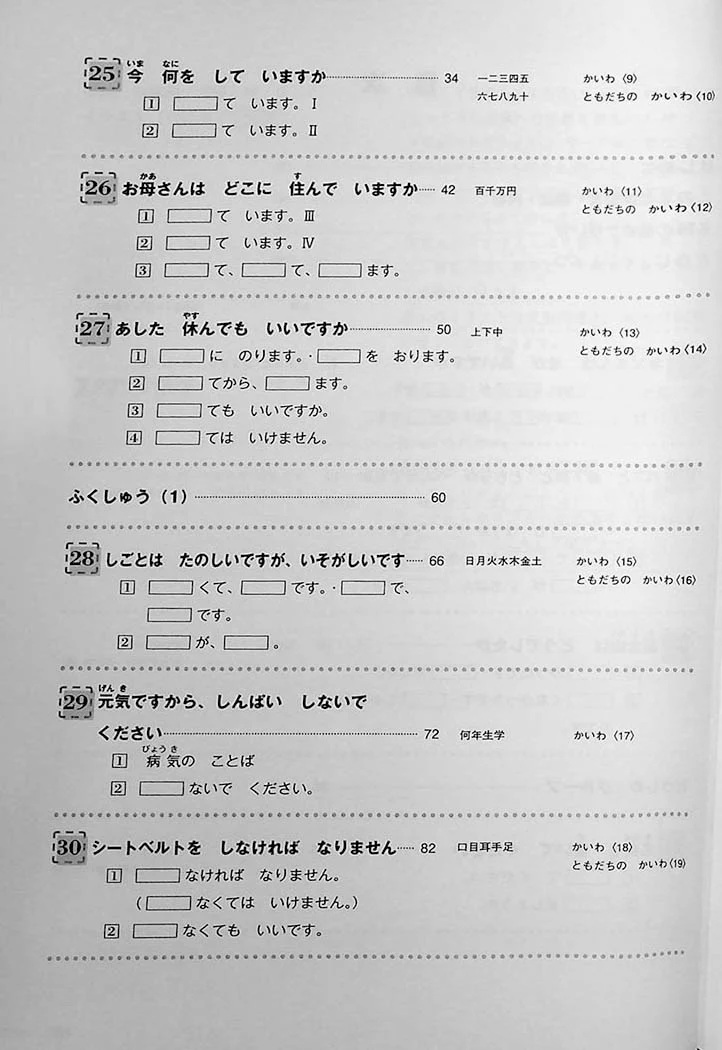 25 今 何を して いますか 34 一二三四五 かいわ〈9〉
いま なに
六七八九十 ともだちの かいわ〈10〉
1 て います。Ⅰ
2 て います。Ⅱ
26 お母さんは どこに 住んで いますか 42 百千万円 かいわ〈11〉
かあ す
ともだちの かいわ〈12〉
1 て います。Ⅲ
2 て います。Ⅳ
3 て、 て、 ます。
27 あした 休んでも いいですか 50 上下中 かいわ〈13〉
やす
ともだちの かいわ〈14〉
1 に のります。・ を おります。
2 てから、 ます。
3 ても いいですか。
4 ては いけません。
ふくしゅう(1) 60
28 しごとは たのしいですが、いそがしいです 66 日月火水木金土 かいわ〈15〉
ともだちの かいわ〈16〉
1 くて、 です。・ で、
です。
2 が、 。
29 元気ですから、しんぱい しないで
げん き
ください 72 何年生学 かいわ〈17〉
1 病気の ことば
びょう き
2 ないで ください。
30 シートベルトを しなければ なりません 82 口目耳手足 かいわ〈18〉
ともだちの かいわ〈19〉
1 なければ なりません。
( なくては いけません。)
2 なくても いいです。